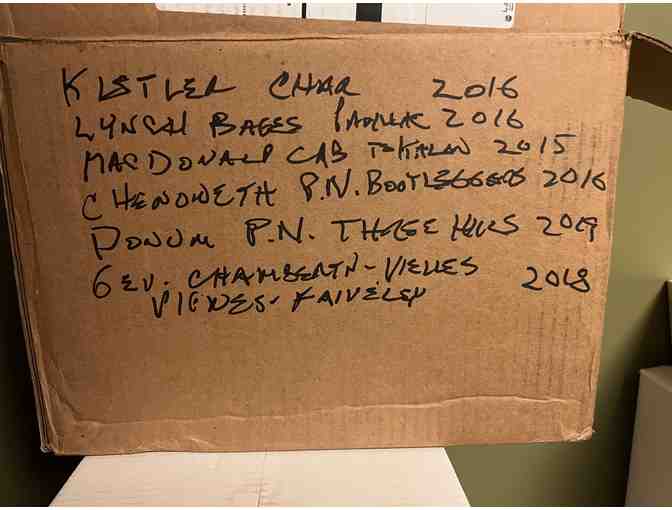 KISTLER CHAR 2016
LYNCH BAGES PAUILLAC 2016
MACDONALD CAB TO KALON 2015
CHENOWETH P.N. BOOTLEGGERS 2016
DONUM P.N. THREE HILLS 2019
GEV. CHAMBERTN-VIELLES 2018
VIGNES-FAIVELEY